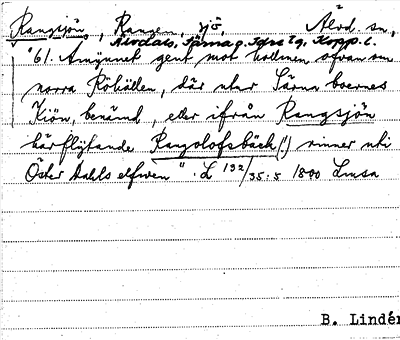 Rangsjön, Rangen, sjö, Älvd. sn,
Älvdals, Särna o. Idre tg, Kopp. l.
"61. Amynnet gent mot holmen ofvan om
norra Röhällen, där uhr Särna boernes
Kiön, benämd, eller ifrån Rangsjön
härflytande Rangolofsbäck (!) rinner uti
Öster Dahls elfwen". L 192/35:5 1800 Lmsa
B. Lindén